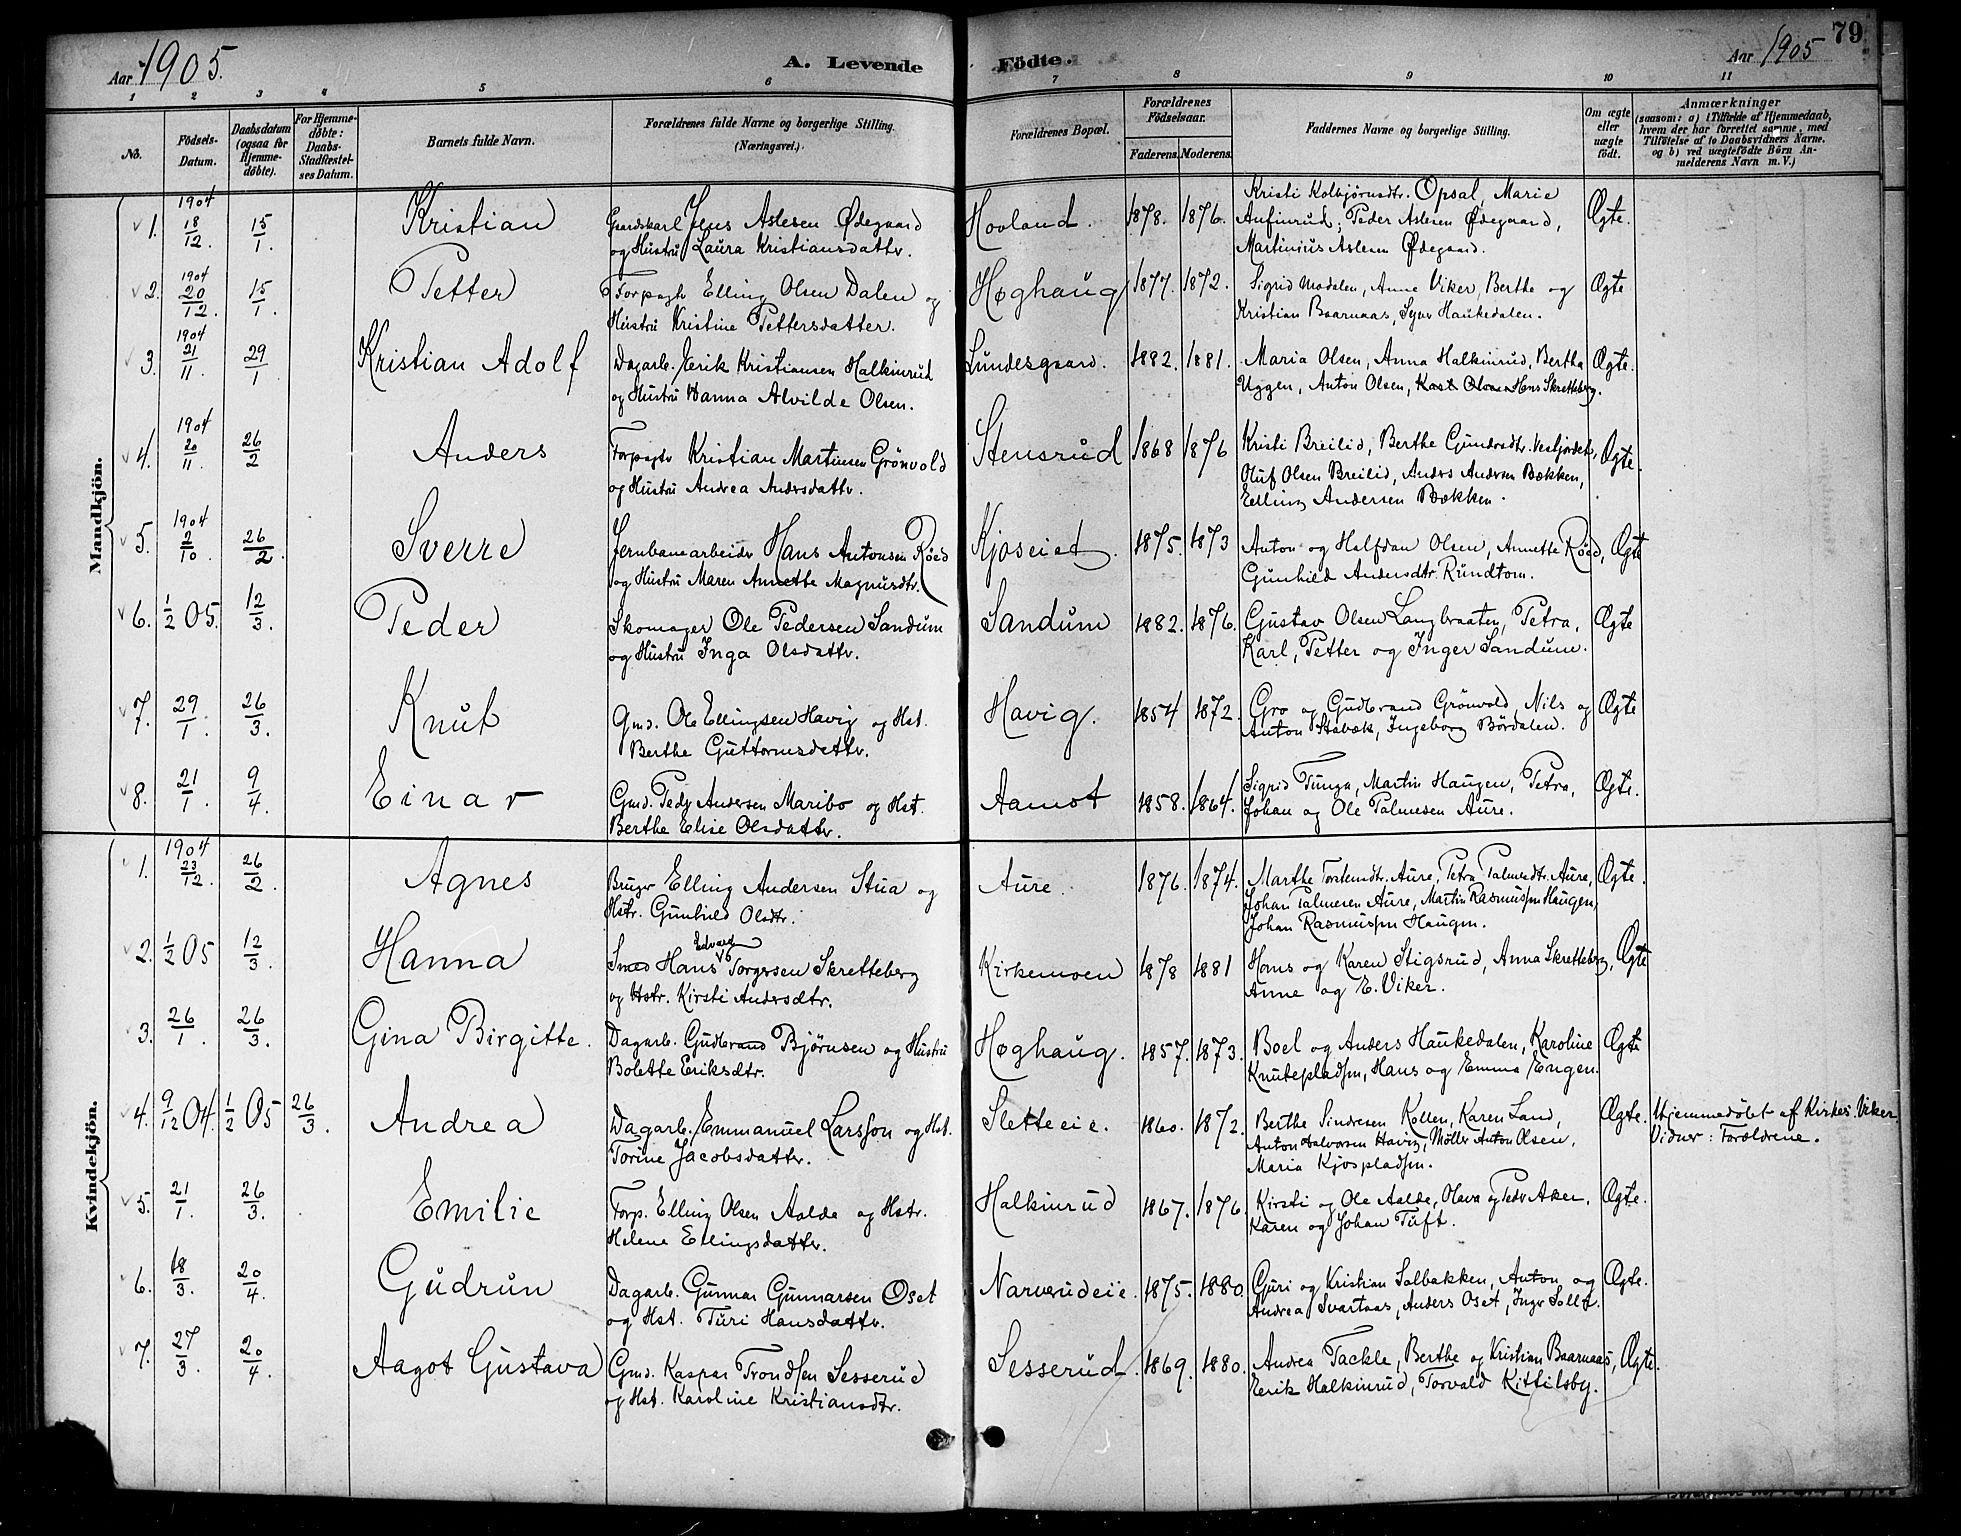 Aar 1905.
A. Levende Födte.
Aar 1905
79
1 2 3 4 5 6 7 8 9 10 11
No.
Födsels-Datum.
Daabsdatum (ogsaa for Hjemmedøbte).
For Hjemmedøbte: Daabs-Stadfæstelses Datum.
Barnets fulde Navn.
Forældrenes fulde Navne og borgerlige Stilling. (Næringsvei.)
Forældrenes Bopæl.
Forældrenes Födselsaar.
Faderens. Moderens.
Faddernes Navne og borgerlige Stilling.
Om ægte eller uægte født.
Anmærkninger
(saasom: a) i Tilfælde af Hjemmedaab, hvem der har forrettet samme, med Tilføielse af to Daabsvidners Navne, og b) ved uægtefödte Börn Anmelderens Navn m. V.)
Mandkjön.
1. 1904 18/12. 15/1. Kristian
Gaardskarl Jens Aslesen Ødegaard
og Hustru Laura Kristiansdattr.
Hovland. 1878. 1876.
Kristi Kolbjørnsdtr. Opsal, Marie
Anfinrud; Peder Aslesen Ødegaard,
Martinius Aslesen Ødegaard.
Ægte.
2. 1904 20/12. 15/1. Petter
Forpagtr Elling Olsen Dalen og
Hustru Kristine Pettersdatter.
Høghaug 1877. 1872.
Sigrid Modalen, Anne Viker, Berthe og
Kristian Baarnaas, Syver Haukedalen.
Ægte
3. 1904 21/11. 29/1. Kristian Adolf
Dagarb. Eerik Kristiansen Halkinrud
og Hustru Hanna Alvilde Olsen.
Lundesgaard. 1882. 1881.
Maria Olsen, Anna Halkinrud, Bertha
Uggen, Anton Olsen, Hans Skretteberg.
Ægte.
4. 1904 20/11. 26/2 Anders
Forpagtr Kristian Martinsen Grönvold
og Hustru Andrea Andersdattr.
Stensrud 1868 1876
Kristi Breilid, Berthe Gundersdtr. Vestjordet,
Oluf Olsen Breilid, Anders Andersen Bækken,
Elling Andersen Bækken.
Ægte.
5. 1904 2/10. 26/2. Sverre
Jernbanearbeidr Hans Antonsen Røed
og Hustru Maren Annette Magnusdtr.
Kjoseiet. 1875. 1873
Anton og Halfdan Olsen, Annette Røed,
Gunhild Andersdtr. Rundtom.
Ægte
6. 1/2 05. 12/3. Peder
Skomager Ole Pedersen Sandum
og Hustru Inga Olsdattr.
Sandum 1882. 1876.
Gustav Olsen Langbraaten, Petra,
Karl, Petter og Inger Sandum.
Ægte
7. 29/1. 26/3. Knut
Gmd. Ole Ellingsen Havig og Hst.
Berthe Guttormsdattr.
Havig. 1854 1872.
Gro og Gudbrand Grönvold, Nils og
Anton Stabæk, Ingeborg Bördalen.
Ægte
8. 21/1. 9/4. Einar
Gmd. Pedr Andersen Maribo og Hst.
Berthe Elise Olsdattr.
Aamot 1858. 1864.
Sigrid Tunga, Martin Haugen, Petra,
Johan og Ole Palmesen Aure.
Ægte.
Kvindekjön.
1. 1904 23/12. 26/2. Agnes
Bruger Elling Andersen Stua og
Hstr. Gunhild Olsdtr.
Aure. 1876. 1874.
Marthe Torstensdtr. Aure, Petra Palmesdtr. Aure,
Johan Palmesen Aure, Martin Rasmussen Haugen,
Johan Rasmussen Haugen.
Ægte.
2. 1/2 05 12/3. Hanna
Smed Hans Edvard Torgersen Skretteberg
og Hstr. Kirsti Andersdtr.
Kirkemoen 1878 1881
Hans og Karen Stigsrud, Anna Skretteberg,
Anne og E. Viker.
Ægte
3. 26/1. 26/3. Gina Birgitte.
Dagarb. Gudbrand Bjørnsen og Hustru
Bolette Eeriksdtr.
Høghaug. 1857. 1873.
Boel og Anders Haukedalen, Karoline
Knutepladsen, Hans og Emma Engen.
Ægte
4. 9/12 04. 1/2 05 26/3. Andrea
Dagarb. Emmanuel Larsson og Hst.
Torine Jacobsdatter.
Sletteeie. 1860. 1872.
Berthe Sindresen Kollen, Karen Land,
Anton Halvorsen Havig, Møller Anton Olsen,
Maria Kjøspladsen.
Ægte. Hjemmedøbt af Kirkes. Viker.
Vidner: Forældrene.
5. 21/1. 26/3. Emilie
Forp. Elling Olsen Aalde og Hstr.
Helene Ellingsdatter.
Halkinrud 1867. 1876.
Kirsti og Ole Aalde, Olava og Pedr Aker,
Karen og Johan Tuft.
Ægte.
6. 18/3. 20/4. Gudrun
Dagarb. Gunnar Gunnarsen Oset
og Hst. Turi Hansdattr.
Narverudeie. 1875. 1880.
Guri og Kristian Solbakken, Anton og
Andrea Svartaas, Anders Oset, Ingr Sollø.
Ægte.
7. 27/3. 20/4. Aagot Gustava
Gmd. Kaspar Trondsen Sesserud
og Hst. Karoline Kristiansdtr.
Sesserud. 1869. 1880.
Andrea Tackle, Berthe og Kristian Baarnaas,
Eerik Halkinrud, Torvald Kittilsby.
Ægte.